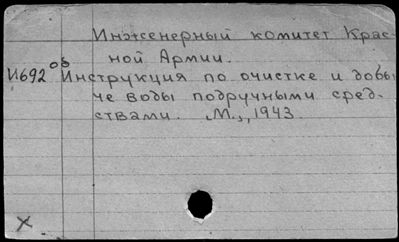 Инженерный комитет Крас-
ной Армии.
И692 об Инструкция по очистке и добы-
че воды подручными сред-
ствами. М., 1943.
X